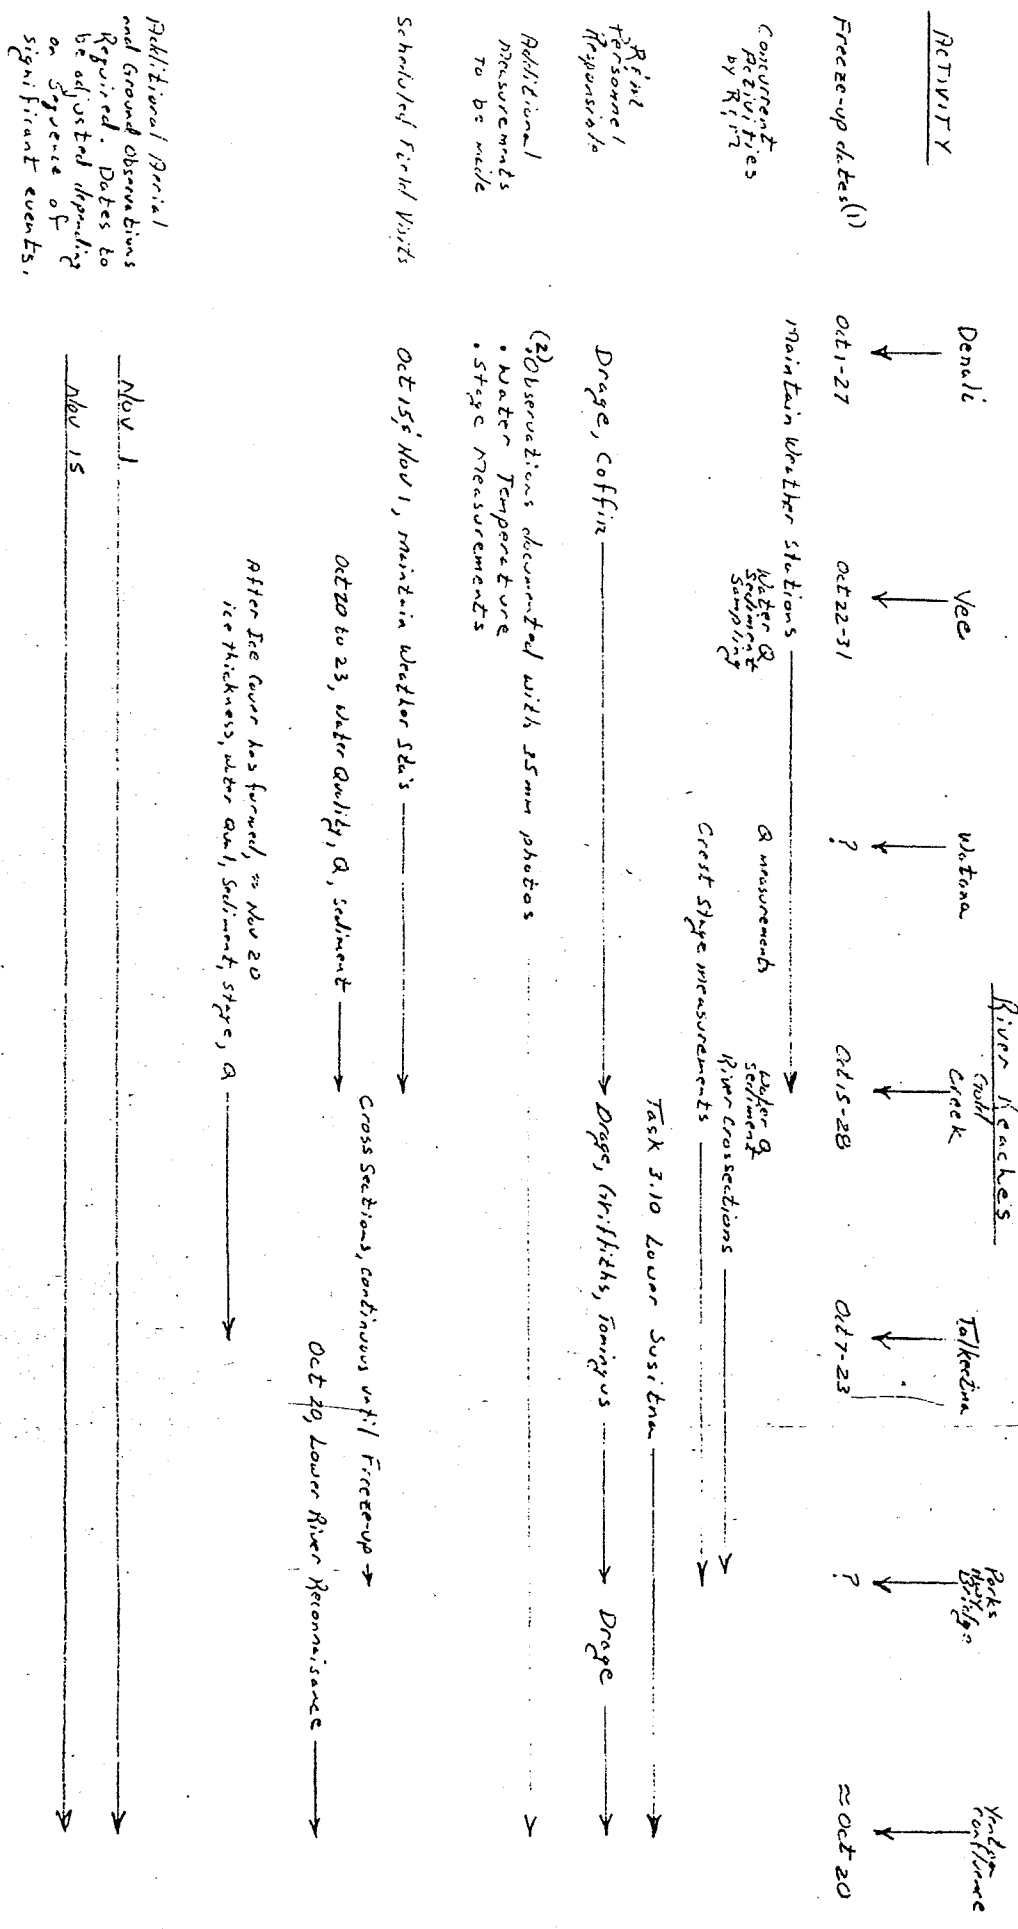 River Reaches
ACTIVITY
Denali
Vee
Watana
Gold
Creek
Talkeetna
Parks
Hwy
Bridge
Yentna
Confluence
Freeze-up dates(1)
Oct 1-27
Oct 22-31
?
Oct 15-28
Oct 7-23
?
≈ Oct 20
Concurrent
Activities
by R&M
Maintain Weather Stations
Water Q
Sediment
Sampling
Q measurements
Water Q
Sediment
River Crossections
Crest Stage measurements
Task 3.10 Lower Susitna
R&M
Personnel
Responsible
Drage, Coffin
Drage, Griffiths, Tomingus
Drage
Additional
measurements
to be made
(2)
• Observations documented with 35mm photos
• Water Temperature
• Stage Measurements
Scheduled Field Visits
Oct 15, & Nov 1, Maintain Weather Sta's
Cross Sections, continuous until Freeze-up
Oct 20 to 23, Water Quality, Q, Sediment
Oct 20, Lower River Reconnaisance
After Ice Cover has formed, ≈ Nov 20
ice thickness, water Qual, Sediment, stage, Q
Additional Aerial
and Ground Observations
Required. Dates to
be adjusted depending
on Sequence of
significant events.
Nov 1
Nov 15